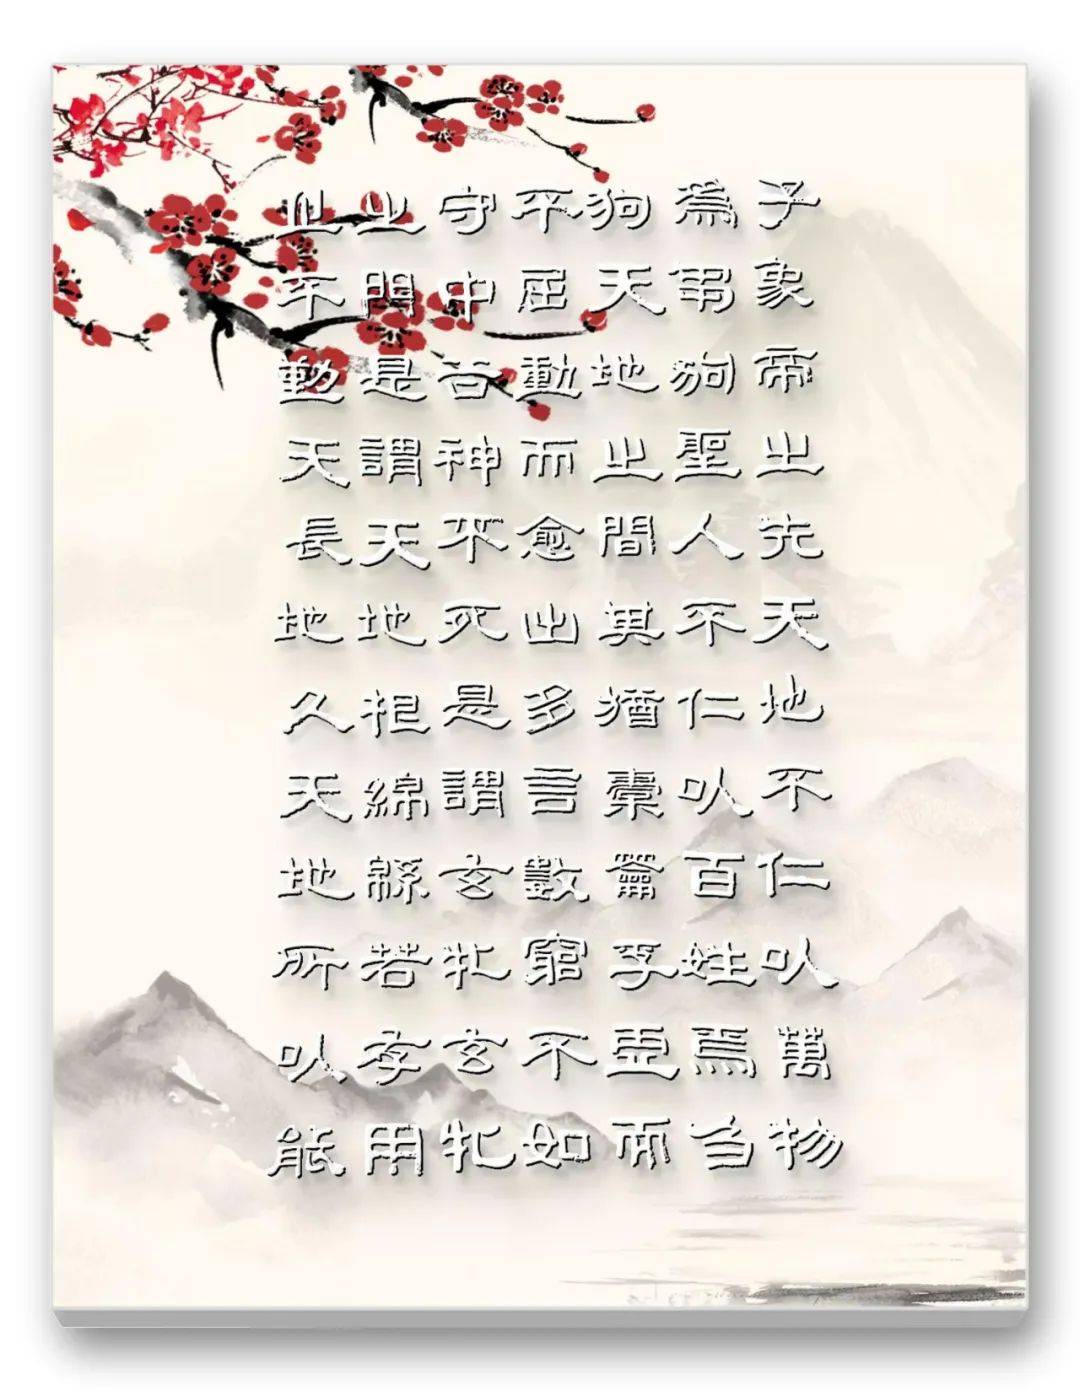 子象帝之先天地不仁以萬物
為芻狗聖人不仁以百姓為芻
狗天地之間其猶橐籥乎虛而
不屈動而愈出多言數窮不如
守中谷神不死是謂玄牝玄牝
之門是謂天地根綿綿若存用
之不勤天長地久天地所以能